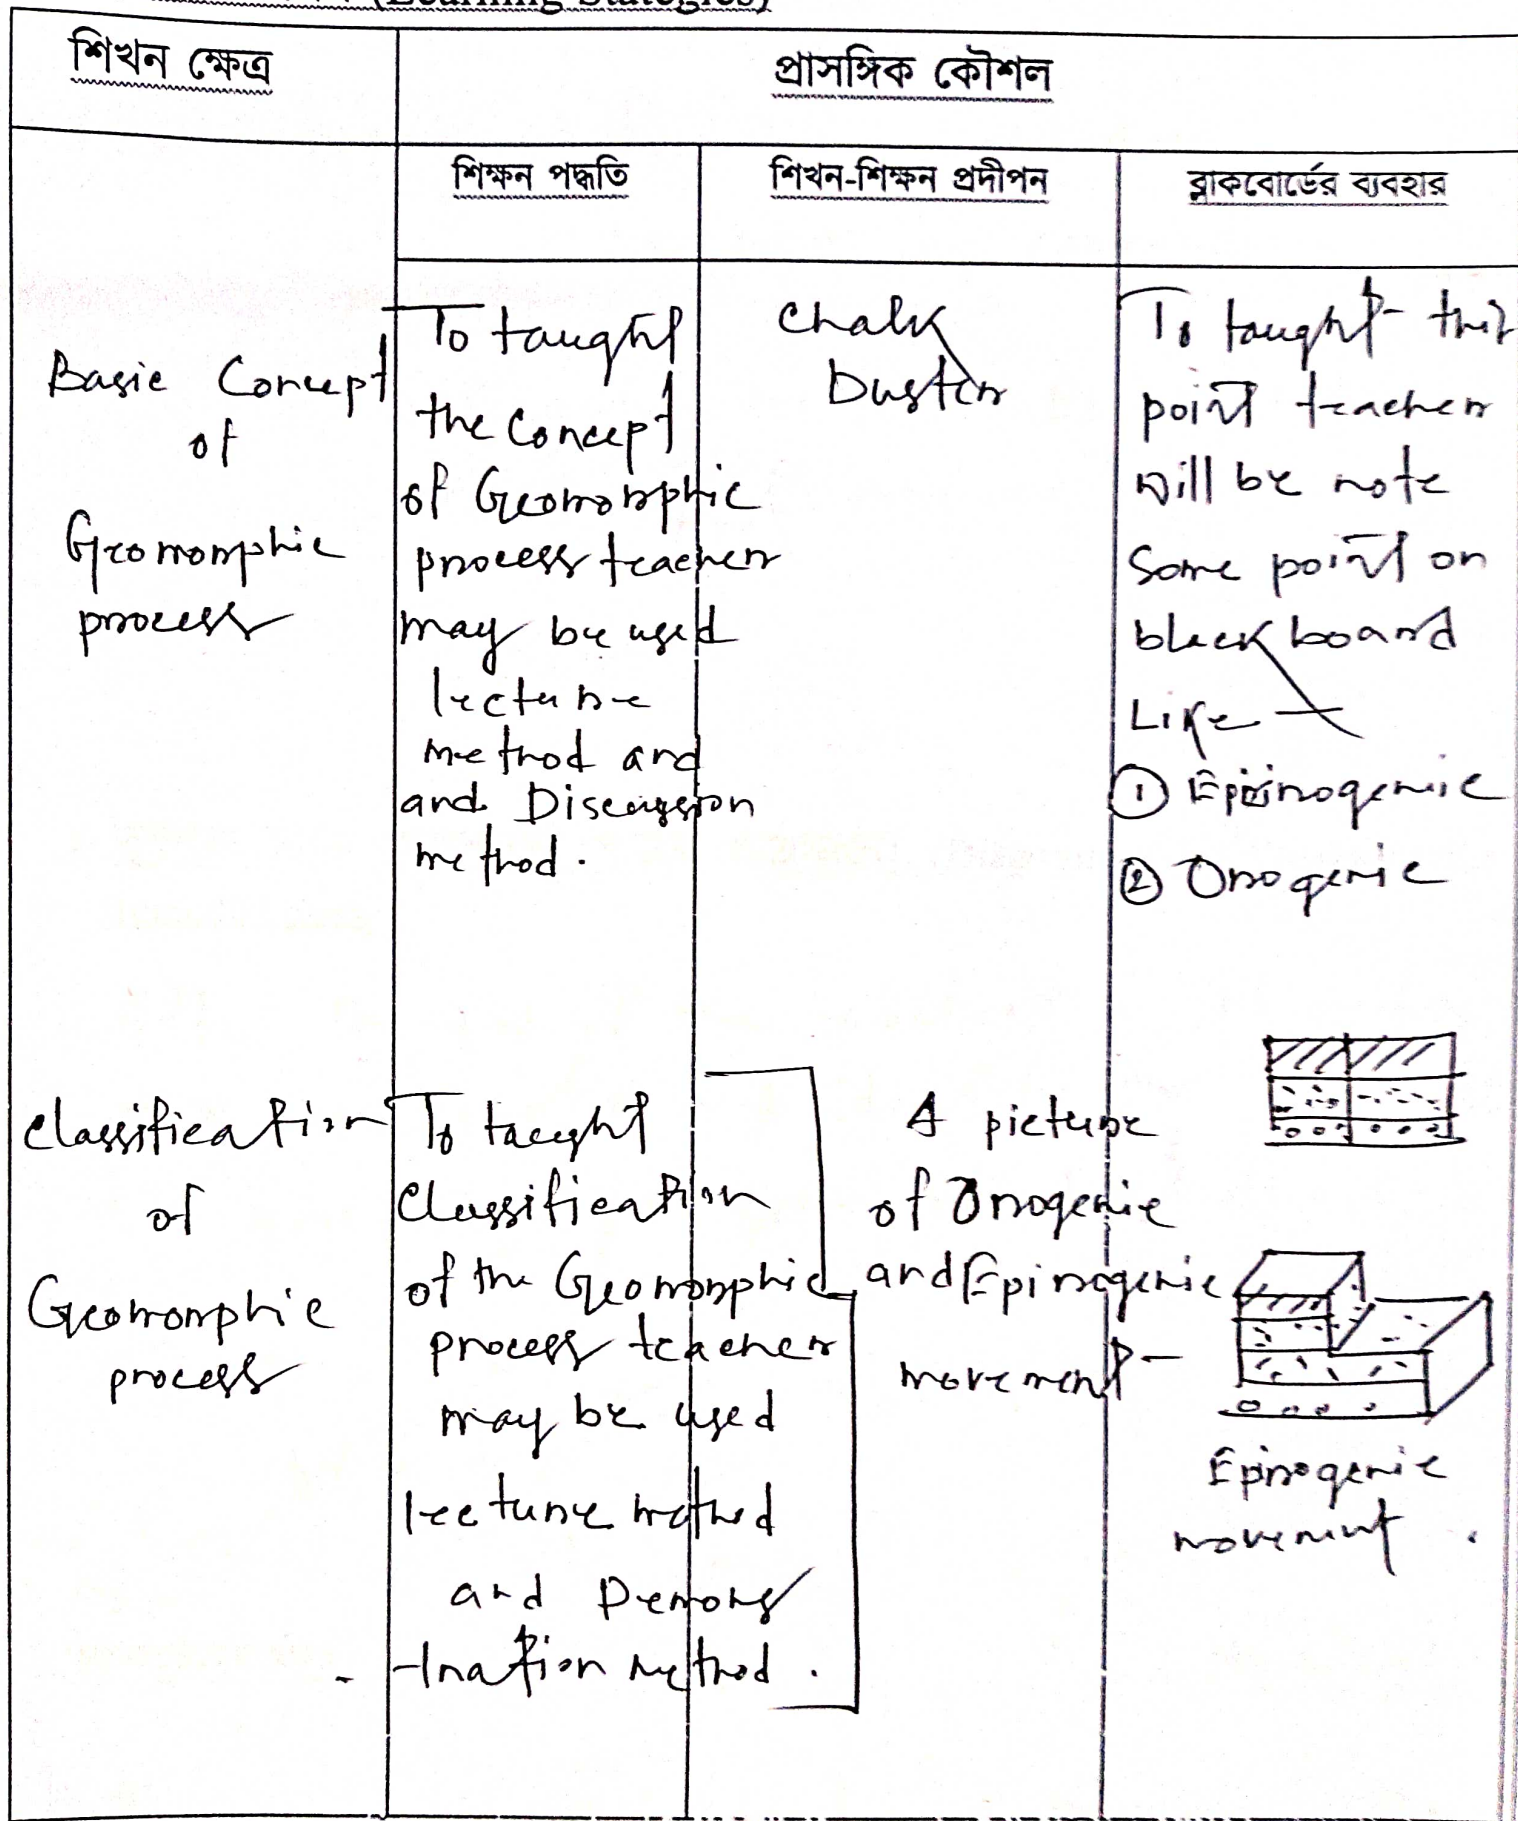 (Learning Stategies)
শিখন ক্ষেত্র
প্রাসঙ্গিক কৌশল
শিক্ষন পদ্ধতি
শিখন-শিক্ষন প্রদীপন
ব্লাকবোর্ডের ব্যবহার
Basic Concept
of
Geomorphic
process
To taught
the Concept
of Geomorphic
process teacher
may be used
lecture
method and
and Discussion
method.
Chalk
Duster
To taught this
point teacher
will be note
Some point on
black board
Like —
① Epirogenic
② Orogenic
Classification
of
Geomorphic
process
To taught
Classification
of the Geomorphic
process teacher
may be used
lecture method
and Demons
-tration method.
A picture
of Orogenic
and Epirogenic
movement
Epirogenic
movement.